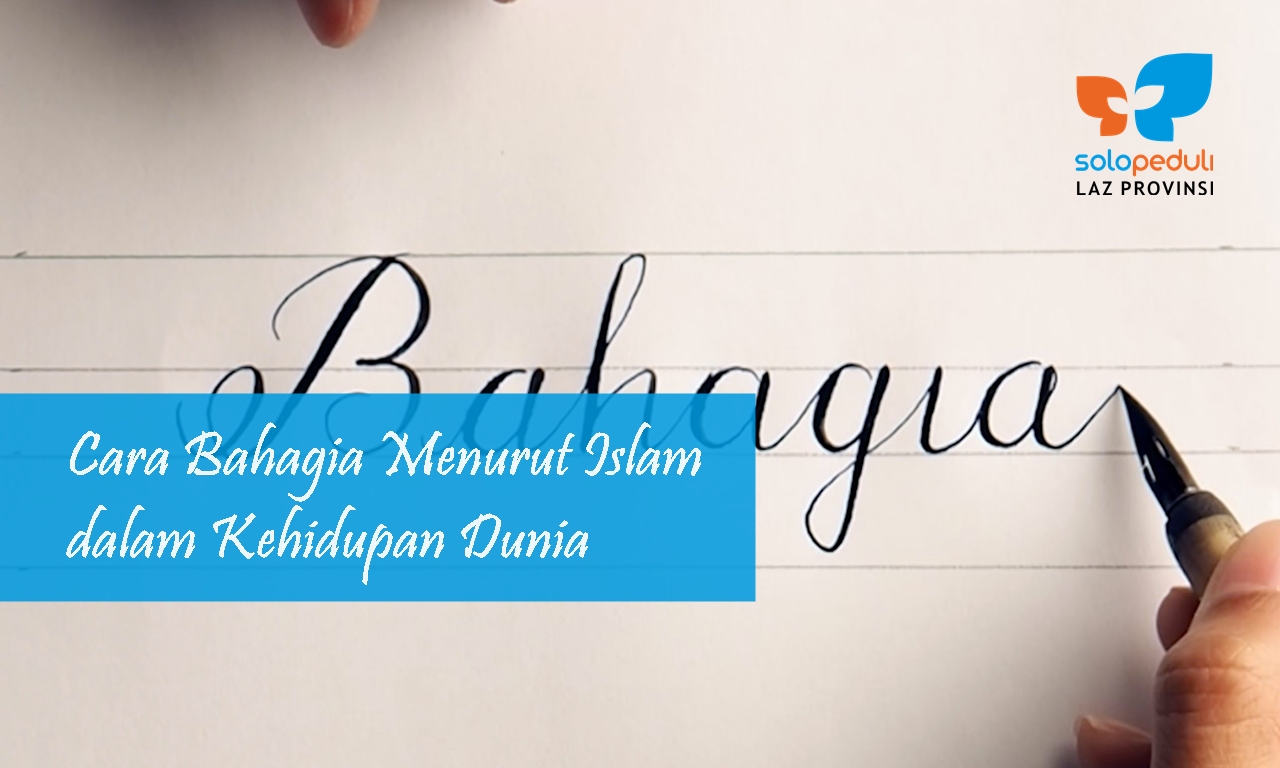 solopeduli
LAZ PROVINSI
Bahagia
Cara Bahagia Menurut Islam
dalam Kehidupan Dunia